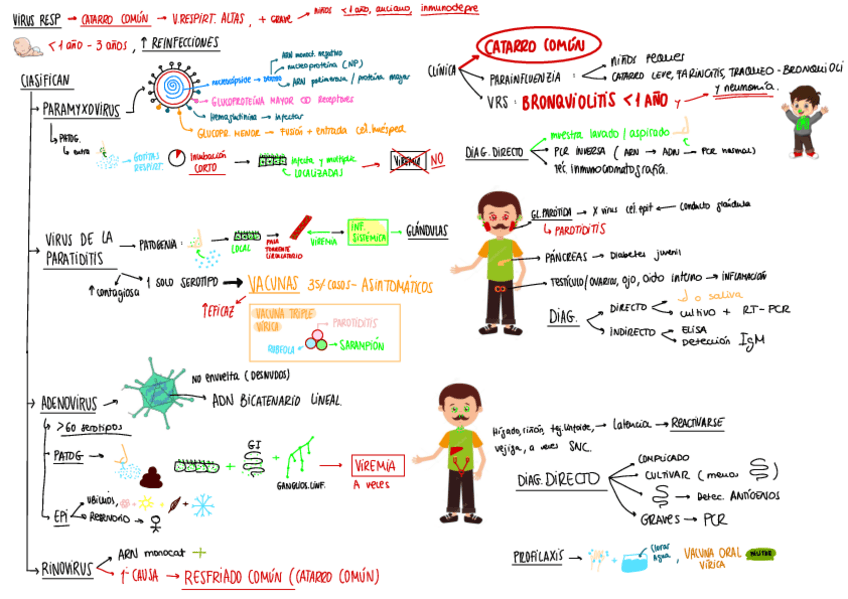 VIRUS RESP → CATARRO COMÚN → V.RESPIRT. ALTAS, + GRAVE → NIÑOS < 1 AÑO, anciano, inmunodepre
< 1 AÑO - 3 AÑOS, ↑ REINFECCIONES
CLASIFICAN
PARAMYXOVIRUS
nucleocápside → DENTRO
ARN monocat. negativo
nucleoproteína (NP)
ARN polimerasa / proteína mayor
GLUCOPROTEÍNA MAYOR receptores
Hemaglutinina → infectar
GLUCOPR MENOR → FUSIÓN + ENTRADA CEL. huésped
PATOG.
entra
GOTITAS RESPIRT.
INCUBACIÓN CORTO
Infecta y multiplic
LOCALIZADAS
VIREMIA NO
CLÍNICA
CATARRO COMÚN
PARAINFLUENZA :
NIÑOS PEQUES
CATARRO LEVE, FARINGITIS, TRAQUEO-BRONQUIOLI
VRS : BRONQUIOLITIS < 1 AÑO
y neumonía.
DIAG. DIRECTO
muestra lavado / aspirado
PCR INVERSA (ARN → ADN → PCR normal)
TÉC. INMUNOCROMATOGRAFÍA.
VIRUS DE LA PARATIDITIS
PATOGENIA:
LOCAL
PASA TORRENTE CIRCULATORIO
VIREMIA
INF. SISTÉMICA
GLÁNDULAS
↑ contagiosa
1 SOLO SEROTIPO → VACUNAS 35% CASOS - ASINTOMÁTICOS
↑ EFICAZ
VACUNA TRIPLE VÍRICA
PAROTIDITIS
RUBEOLA
SARAMPIÓN
GL. PARÓTIDA → X virus cel. epit ← conducto glándula
PAROTIDITIS
PÁNCREAS → Diabetes juvenil
TESTÍCULO/OVARIOS, OJO, OIDO INTERNO → INFLAMACIÓN
DIAG.
DIRECTO
o saliva
cultivo + RT-PCR
INDIRECTO
ELISA
Detección IgM
ADENOVIRUS
NO ENVUELTA (DESNUDOS)
ADN BICATENARIO LINEAL
> 60 serotipos
PATOG
GI
GANGLIOS. LINF.
VIREMIA
A veces
EPI
UBICUOS,
RESERVORIO →
Hígado, riñón, tej. linfoide, → latencia → REACTIVARSE
vejiga, a veces SNC.
DIAG. DIRECTO
COMPLICADO
CULTIVAR (menos )
→ Detec. ANTÍGENOS
GRAVES → PCR
PROFILAXIS
Clorar Agua
, VACUNA ORAL VÍRICA
RINOVIRUS
ARN monocat +
1ª CAUSA → RESFRIADO COMÚN (CATARRO COMÚN)